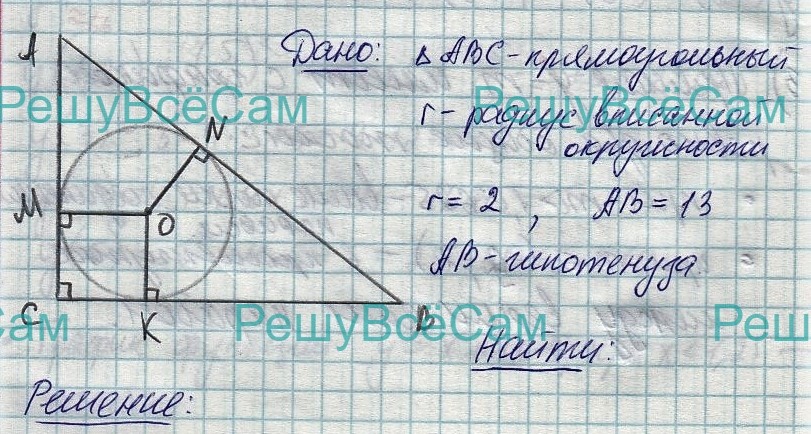 Дано: Δ ABC - прямоугольный
r - радиус вписанной
окружности
r = 2 , AB = 13
AB - гипотенуза
Найти:
Решение:
A
N
M
O
C
K
B
РешуВсёСам
РешуВсёСам
Сам
РешуВсёСам
РешуВсёСам